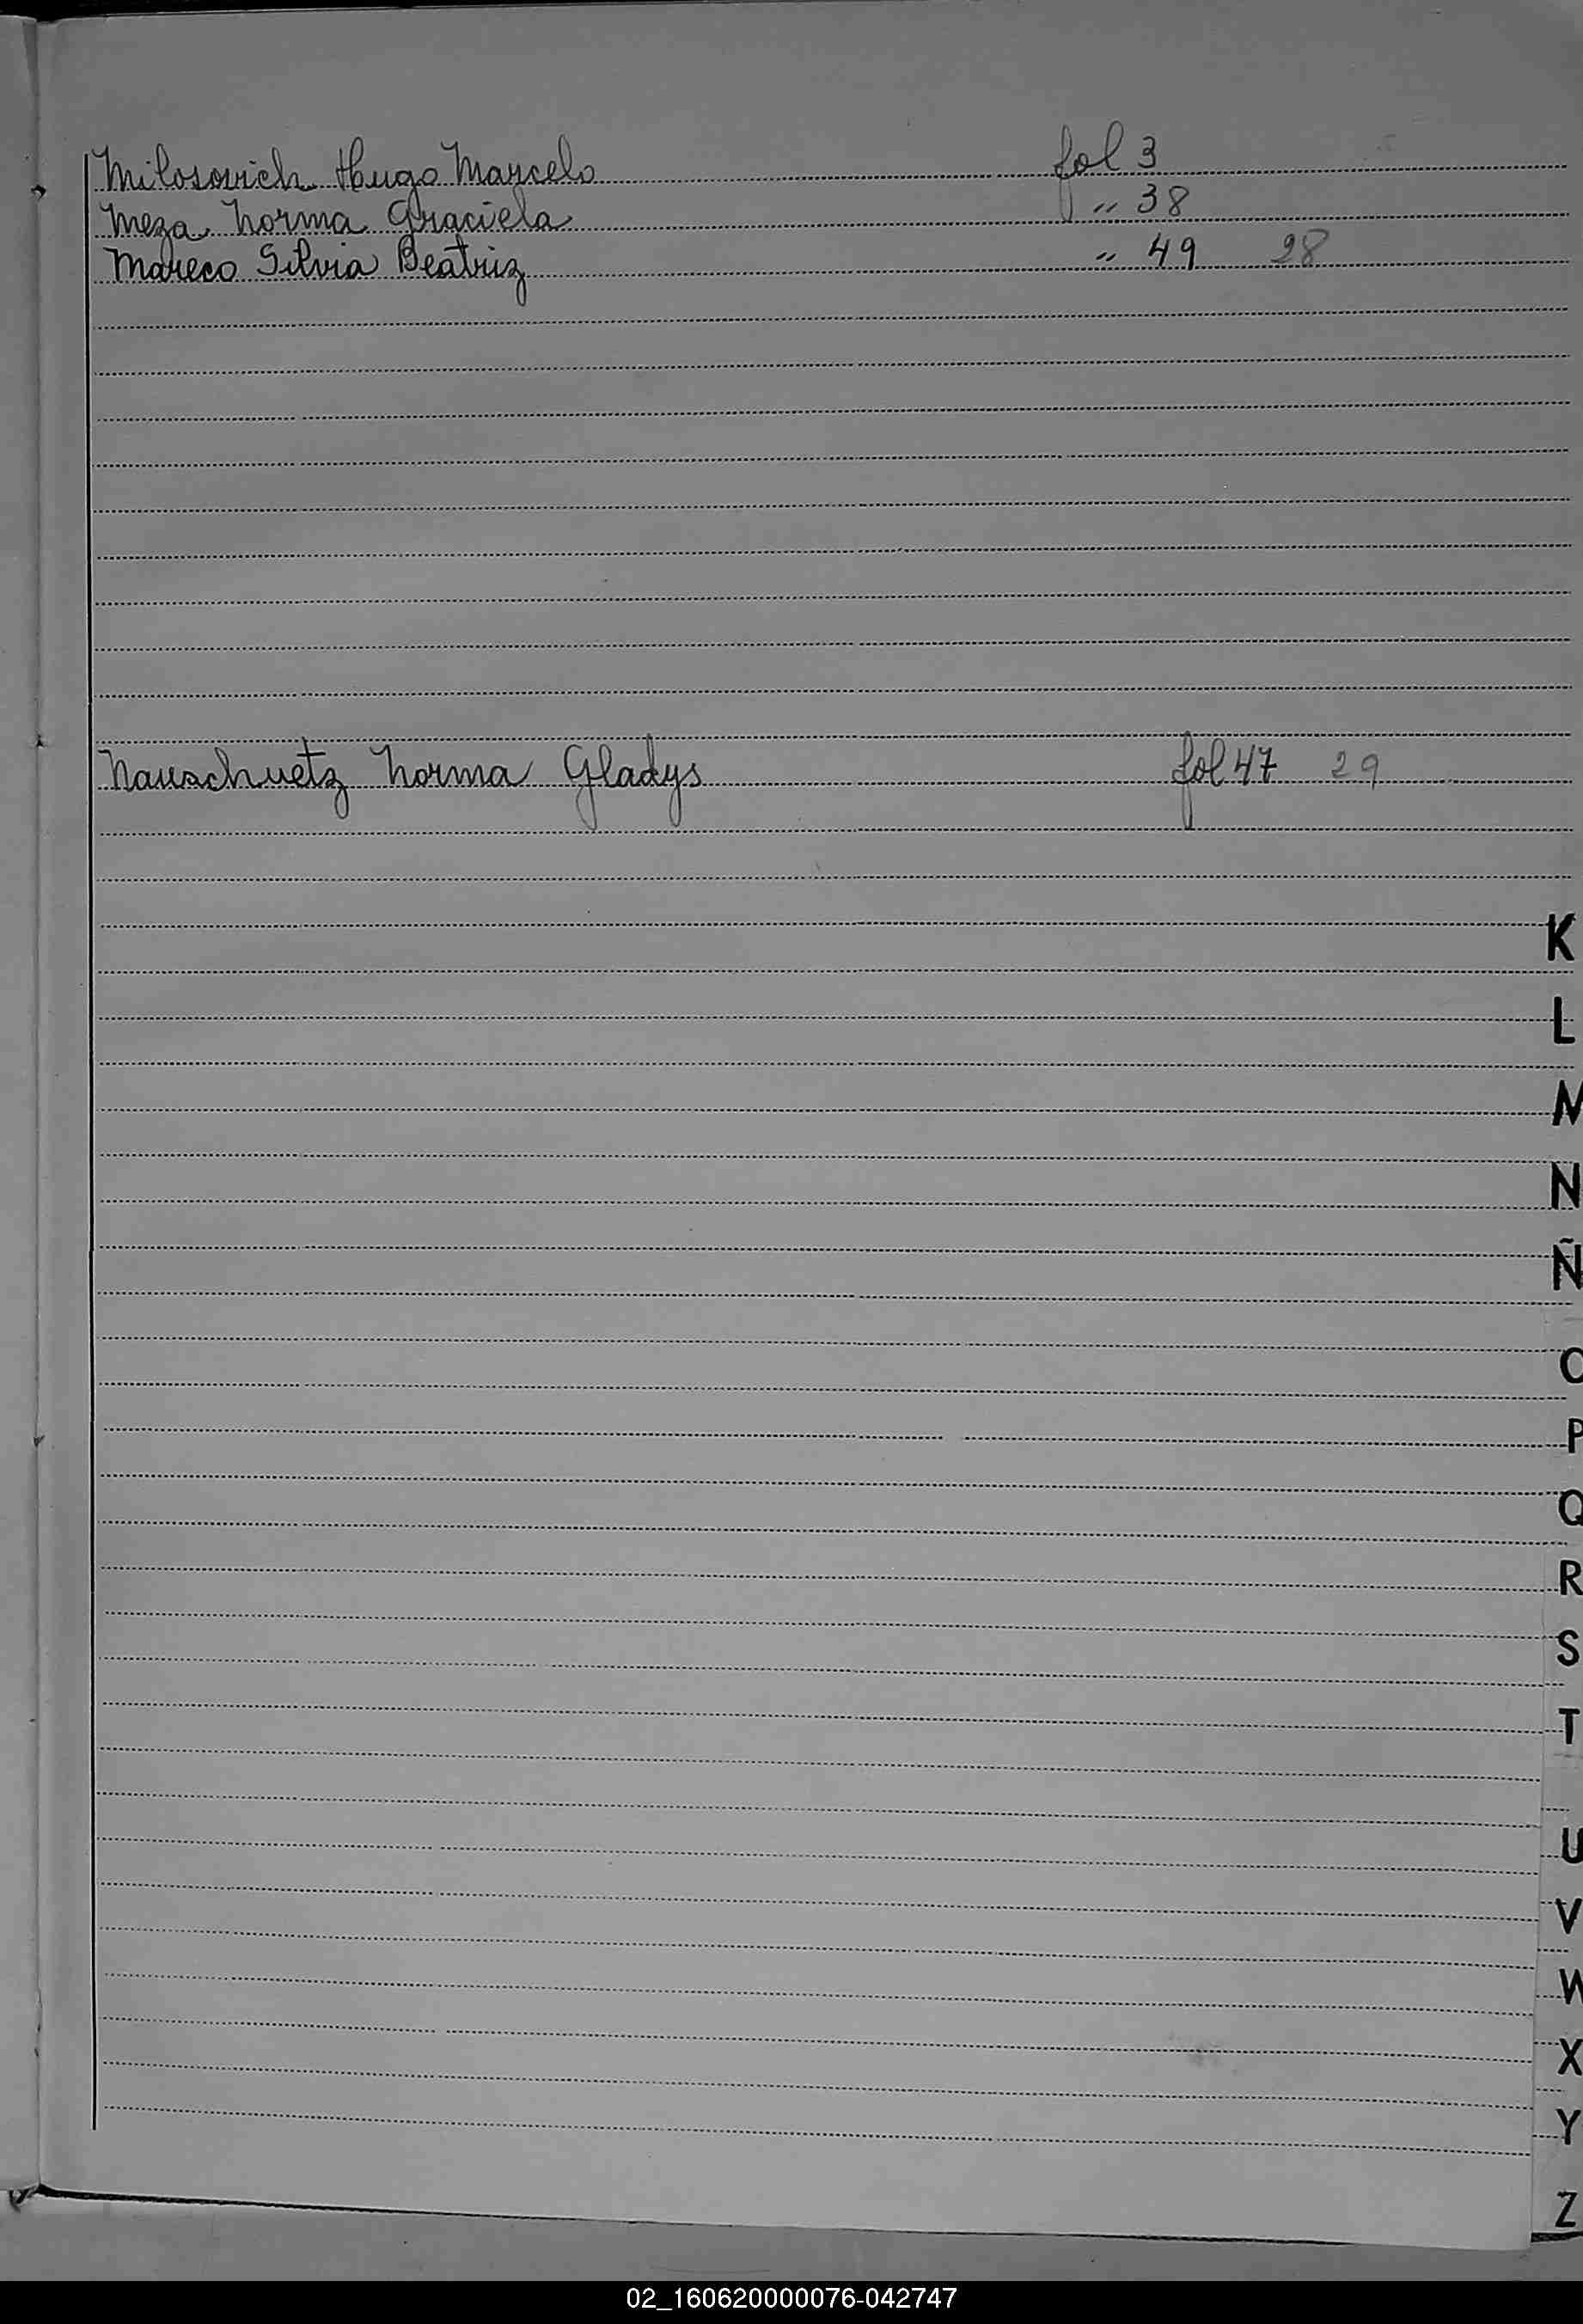 Milosovich Hugo Marcelo fol 3
Meza Norma Graciela " 38
Mareco Silvia Beatriz " 49 28
Nauschuetz Norma Gladys fol 47 29
K
L
M
N
Ñ
O
P
Q
R
S
T
U
V
W
X
Y
Z
02_160620000076-042747